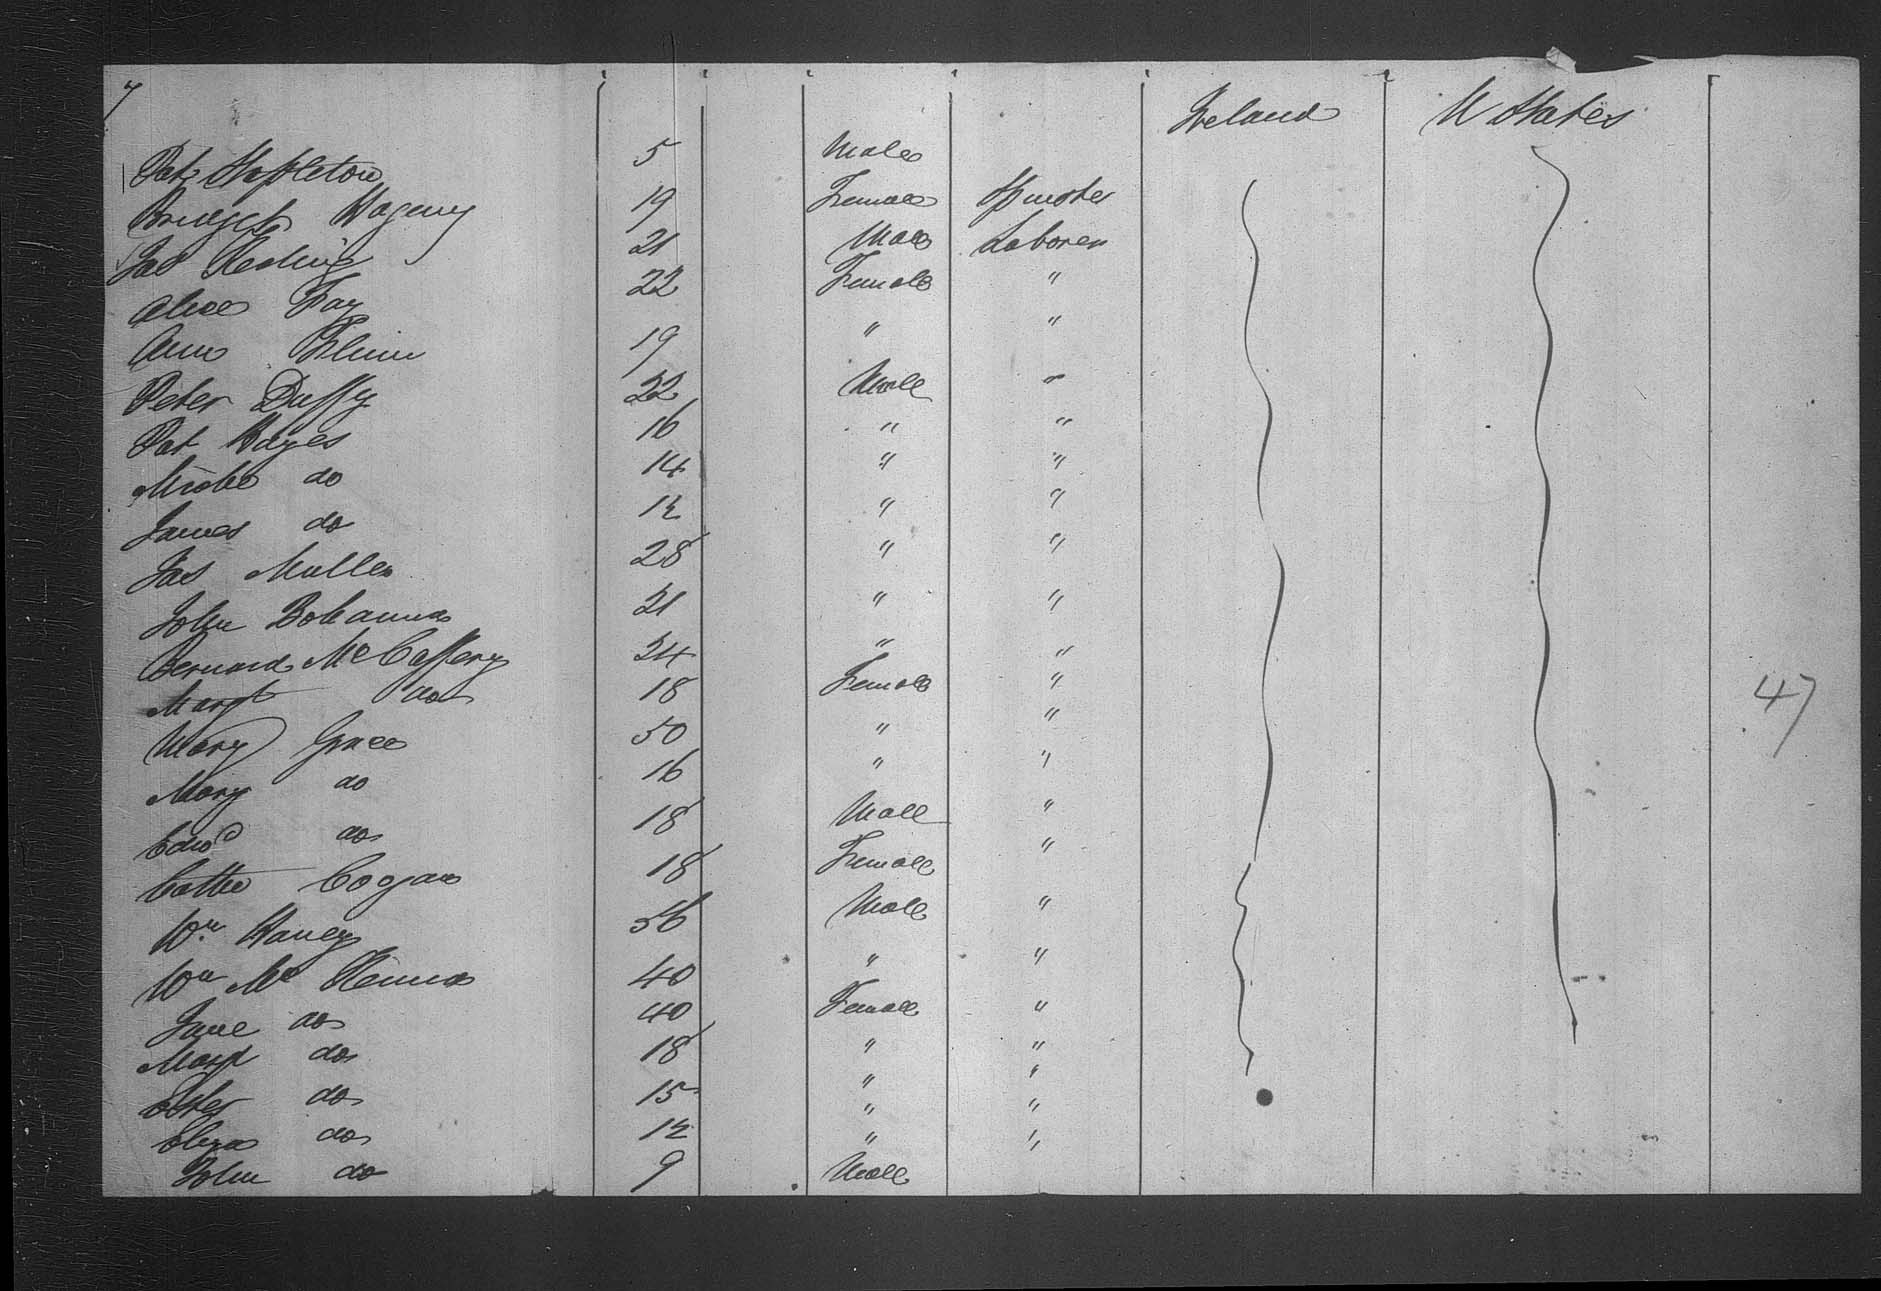 7
Ireland U States
Pat Stapleton 5 Male
Bridget Hageny 19 Female Spinster
Jas Keeling 21 Male Laborer
Alice Fay 22 Female "
Ann Flinn 19 " "
Peter Duffy 22 Male "
Pat Hayes 16 " "
Miche do 14 " "
James do 12 " "
Jas Mullen 28 " "
John Bohanna 21 " "
Bernard McCaffery 24 " "
Margt do 18 Female "
Mary Grace 50 " "
Mary do 16 " "
Edwd do 18 Male "
Cathe Coogan 18 Female "
Wm Haney 56 Male "
Wm McKenna 40 " "
Jane do 40 Female "
Margt do 18 " "
Esther do 15 " "
Eliza do 12 " "
John do 9 Male
47